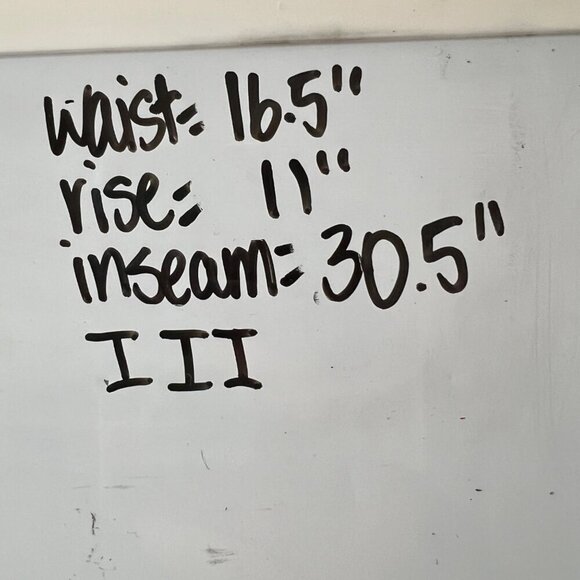 waist= 16.5"
rise= 11"
inseam= 30.5"
III